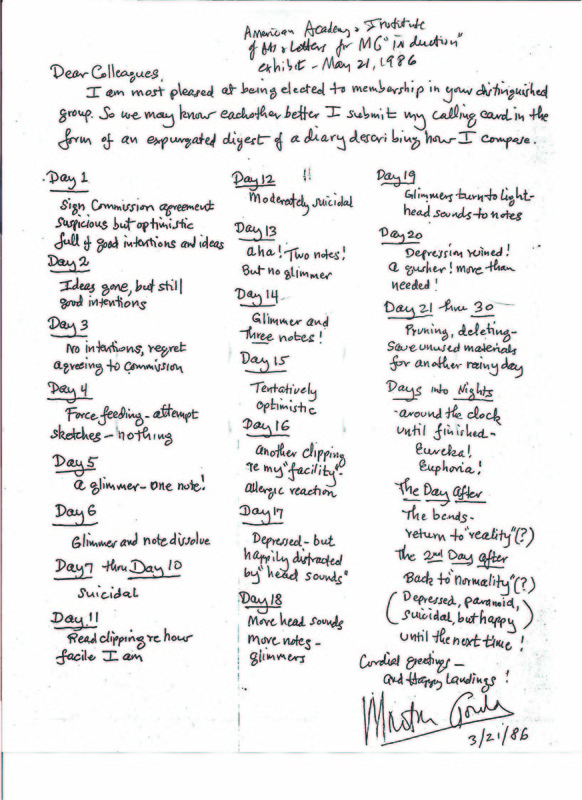 American Academy & Institute
of Arts & Letters for MG "Induction"
exhibit - May 21, 1986
Dear Colleagues,
I am most pleased at being elected to membership in your distinguished
group. So we may know eachother better I submit my calling card in the
form of an expurgated digest of a diary describing how I compose.
Day 1
Sign Commission agreement
suspicious but optimistic
full of good intentions and ideas
Day 2
Ideas gone, but still
good intentions
Day 3
No intentions, regret
agreeing to commission
Day 4
Force feeding - attempt
sketches - nothing
Day 5
a glimmer - one note!
Day 6
Glimmer and note dissolve
Day 7 thru Day 10
Suicidal
Day 11
Read clipping re how
facile I am
Day 12 !!
Moderately suicidal
Day 13
aha! Two notes!
But no glimmer
Day 14
Glimmer and
three notes!
Day 15
Tentatively
optimistic
Day 16
another clipping
re my "facility" -
allergic reaction
Day 17
Depressed - but
happily distracted
by "head sounds"
Day 18
More head sounds
more notes -
glimmers
Day 19
Glimmers turn to light -
head sounds to notes
Day 20
Depression ruined!
a gusher! more than
needed!
Day 21 thru 30
Pruning, deleting -
Save unused materials
for another rainy day
Days into Nights
around the clock
until finished -
Eureka!
Euphoria!
The Day After
The bends -
return to "reality" (?)
The 2nd Day After
Back to "normality" (?)
(Depressed, paranoid,
suicidal, but happy)
until the next time!
Cordial greetings -
and Happy Landings!
Morton Gould
3/21/86